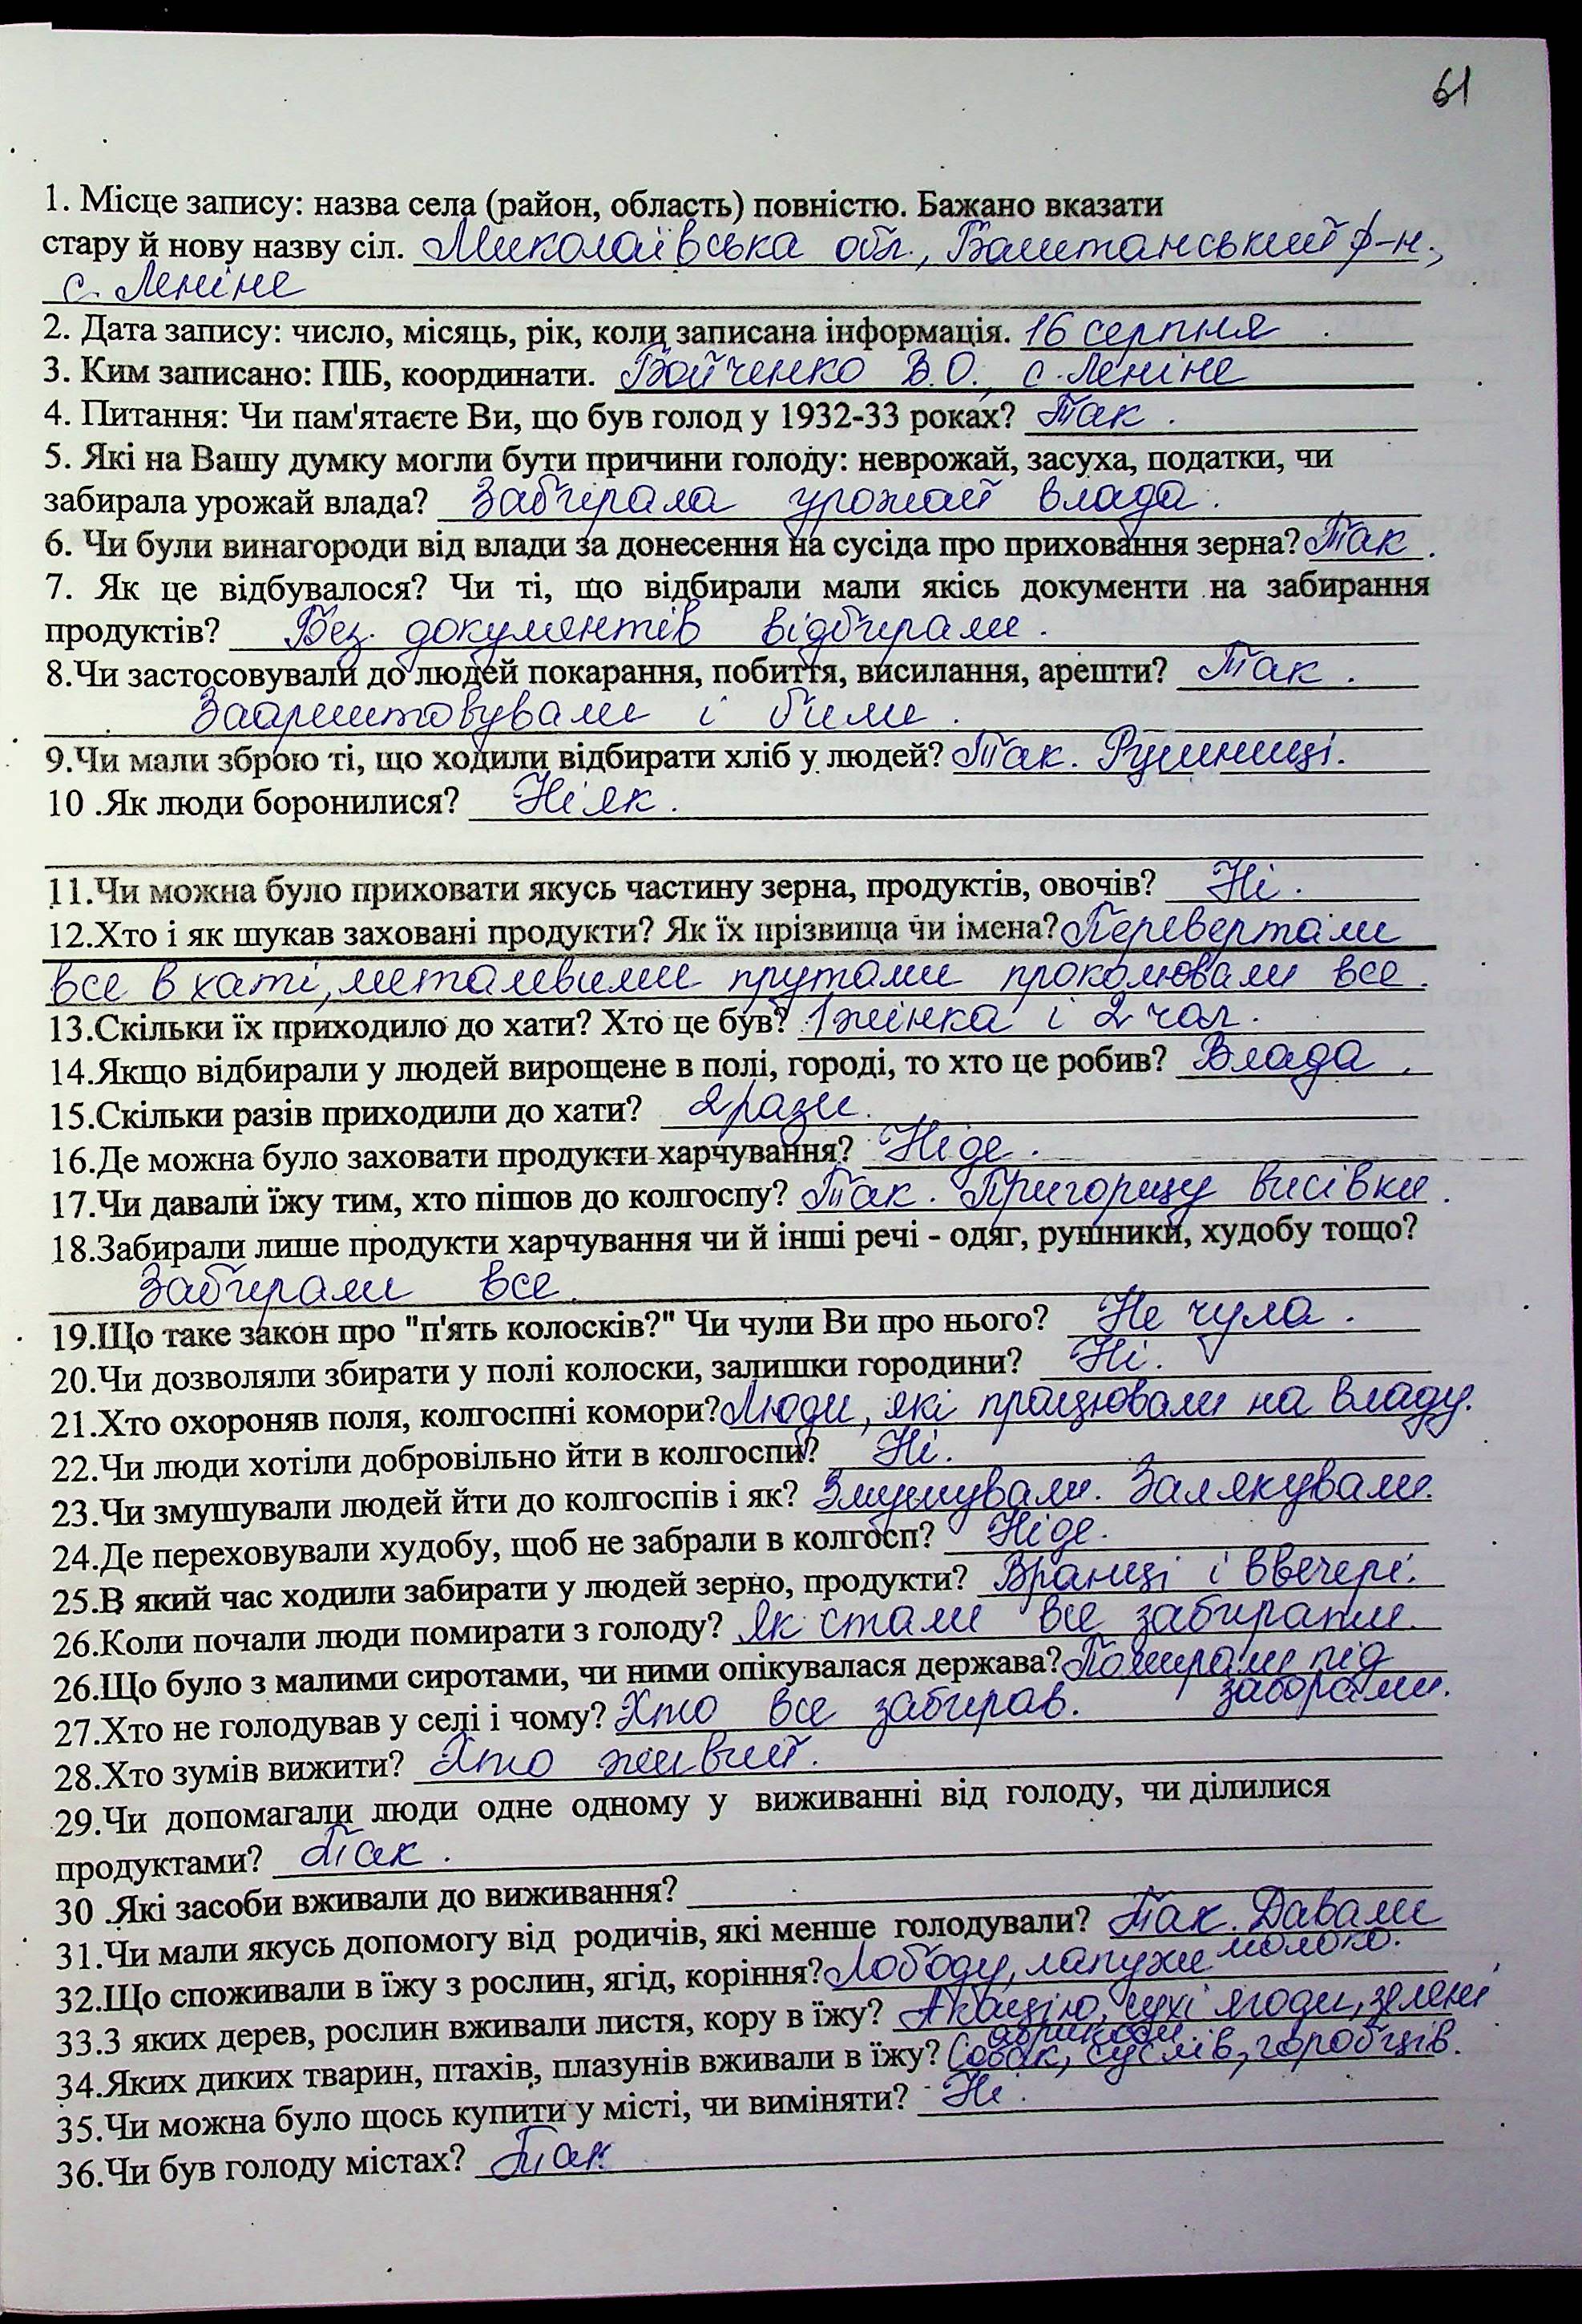 61
1. Місце запису: назва села (район, область) повністю. Бажано вказати
стару й нову назву сіл. Миколаївська обл., Баштанський р-н.,
с. Леніне
2. Дата запису: число, місяць, рік, коли записана інформація. 16 серпня
3. Ким записано: ПІБ, координати. Бойченко В.О., с. Леніне
4. Питання: Чи пам'ятаєте Ви, що був голод у 1932-33 роках? Так.
5. Які на Вашу думку могли бути причини голоду: неврожай, засуха, податки, чи
забирала урожай влада? Забирала урожай влада.
6. Чи були винагороди від влади за донесення на сусіда про приховання зерна? Так.
7. Як це відбувалося? Чи ті, що відбирали мали якісь документи на забирання
продуктів? Без документів відбирали.
8.Чи застосовували до людей покарання, побиття, висилання, арешти? Так.
Заарештовували і били.
9.Чи мали зброю ті, що ходили відбирати хліб у людей? Так. Рушниці.
10 .Як люди боронилися? Ніяк.
11.Чи можна було приховати якусь частину зерна, продуктів, овочів? Ні.
12.Хто і як шукав заховані продукти? Як їх прізвища чи імена? Перевертали
все в хаті, металевими прутами проколювали все.
13.Скільки їх приходило до хати? Хто це був? 1 жінка і 2 чол.
14.Якщо відбирали у людей вирощене в полі, городі, то хто це робив? Влада.
15.Скільки разів приходили до хати? 2 рази.
16.Де можна було заховати продукти харчування? Ніде.
17.Чи давали їжу тим, хто пішов до колгоспу? Так. Пригорщу висівки.
18.Забирали лише продукти харчування чи й інші речі - одяг, рушники, худобу тощо?
Забирали все.
19.Що таке закон про "п'ять колосків?" Чи чули Ви про нього? Не чула.
20.Чи дозволяли збирати у полі колоски, залишки городини? Ні.
21.Хто охороняв поля, колгоспні комори? Люди, які працювали на владу.
22.Чи люди хотіли добровільно йти в колгоспи? Ні.
23.Чи змушували людей йти до колгоспів і як? Змушували. Залякували.
24.Де переховували худобу, щоб не забрали в колгосп? Ніде.
25.В який час ходили забирати у людей зерно, продукти? Вранці і ввечері.
26.Коли почали люди помирати з голоду? Як стали все забирати.
26.Що було з малими сиротами, чи ними опікувалася держава? Помирали під
заборами.
27.Хто не голодував у селі і чому? Хто все забирав.
28.Хто зумів вижити? Хто живий.
29.Чи допомагали люди одне одному у виживанні від голоду, чи ділилися
продуктами? Так.
30 .Які засоби вживали до виживання?
31.Чи мали якусь допомогу від родичів, які менше голодували? Так. Давали
молоко.
32.Що споживали в їжу з рослин, ягід, коріння? Лободу, лапухи
33.З яких дерев, рослин вживали листя, кору в їжу? Акацію, сухі ягоди, зелені
абрикоси.
34.Яких диких тварин, птахів, плазунів вживали в їжу? Собак, суслів, горобців.
35.Чи можна було щось купити у місті, чи виміняти? Ні.
36.Чи був голоду містах? Так